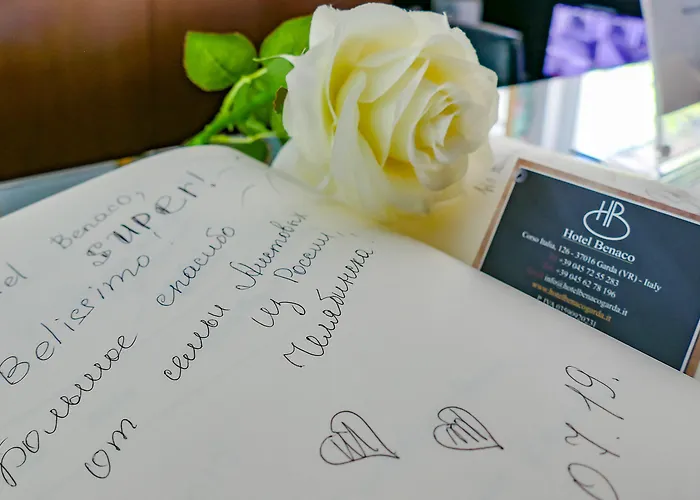 el Benaco,
SUPER!
Belissimo,
Большое спасибо
от семьи
из России,
Челябинска.
07.19.
HB
Hotel Benaco
Corso Italia, 126 - 37016 Garda (VR) - Italy
+39 045 72 55 283
+39 045 62 78 196
info@hotelbenacogarda.it
www.hotelbenacogarda.it